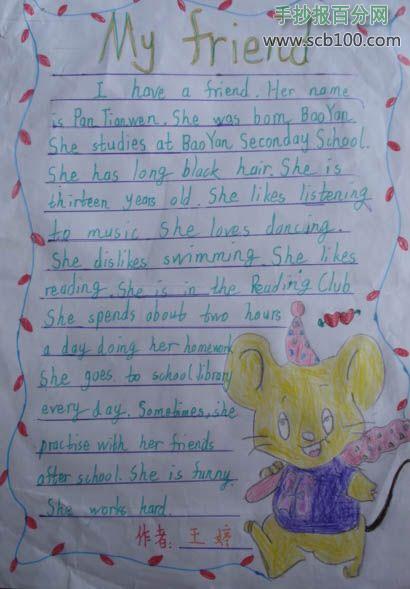 手抄报百分网
www.scb100.com
My friend
I have a friend. Her name
is Pan Tianwen. She was born BaoYan.
She studies at BaoYan Seconday School.
She has long black hair. She is
thirteen years old. She likes listening
to music She loves dancing.
She dislikes swimming. She likes
reading. She is in the Reading Club
She spends about two hours
a day doing her homework
She goes to school library
every day. Sometimes, she
practise with her friends
after school. She is funny.
She works hard.
作者：王婷